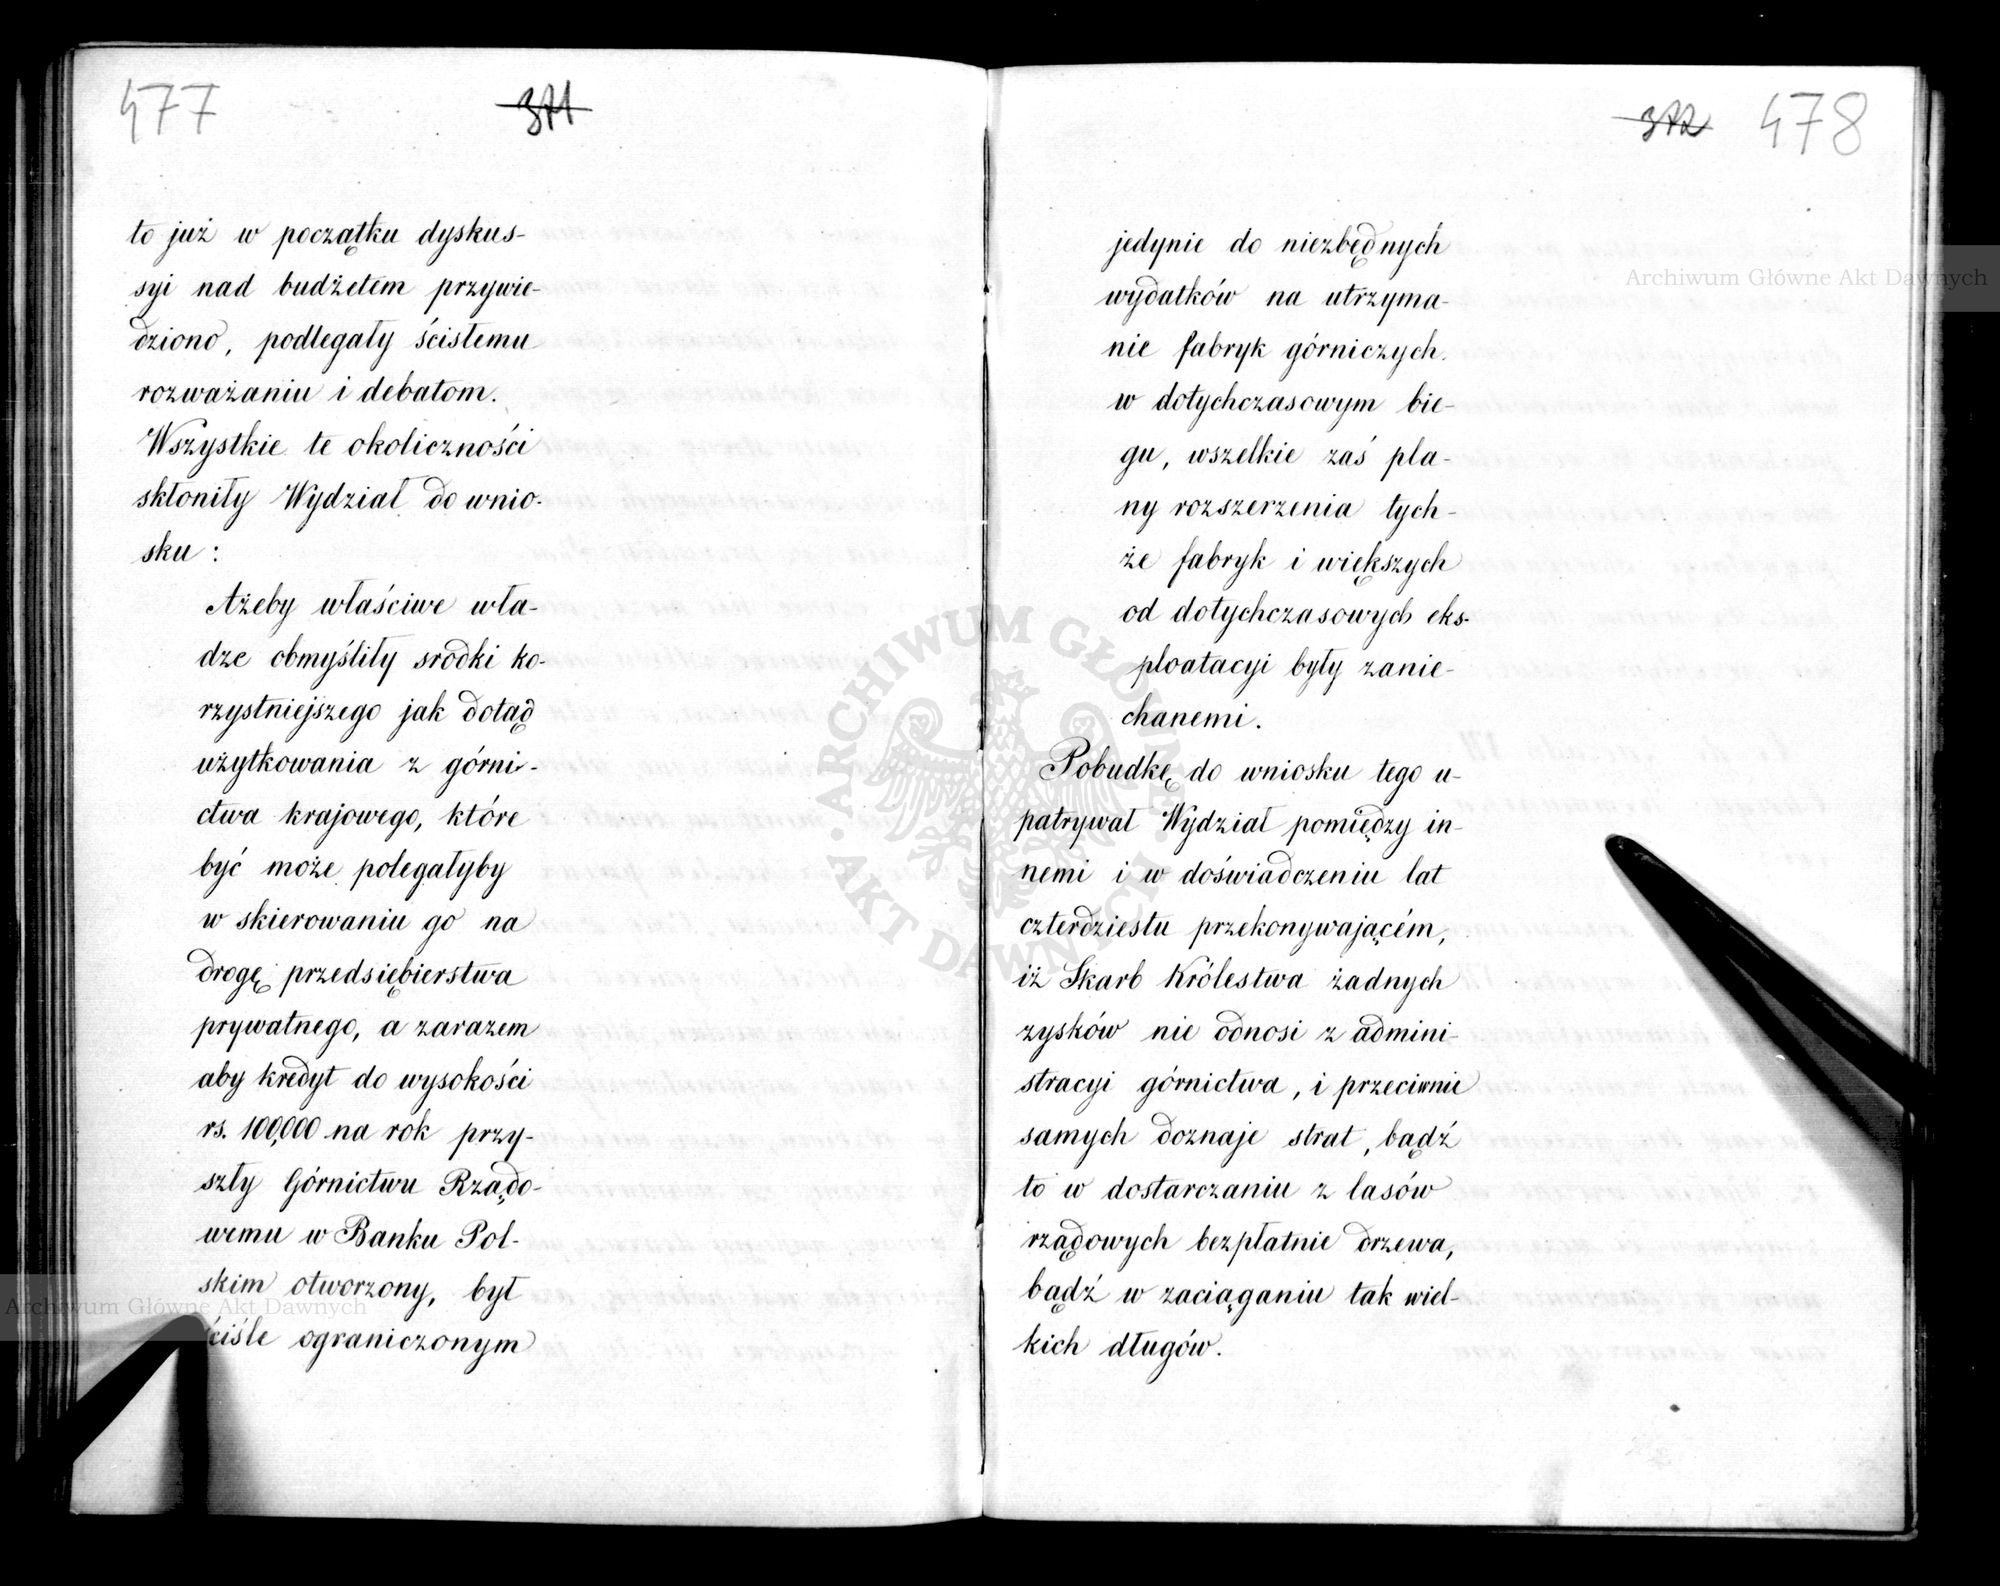 477
371
to już w początku dyskus-
syi nad budżetem przywie-
dziono, podlegały ścisłemu
rozważaniu i debatom.
Wszystkie te okoliczności
skłoniły Wydział do wnio-
sku:
Ażeby właściwe wła-
dze obmyśliły srodki ko-
rzystniejszego jak dotąd
użytkowania z górni-
ctwa krajowego, które
być może polegałyby
w skierowaniu go na
drogę przedsiębierstwa
prywatnego, a zarazem
aby kredyt do wysokości
rs. 100,000 na rok przy-
szły Górnictwu Rządo-
wemu w Banku Pol-
skim otworzony, był
ściśle ograniczonym
372 478
jedynie do niezbędnych
wydatków na utrzyma-
nie fabryk górniczych.
w dotychczasowym bie-
gu, wszelkie zaś pla-
ny rozszerzenia tych-
że fabryk i większych
od dotychczasowych eks-
ploatacyi były zanie-
chanemi.
Pobudkę do wniosku tego u-
patrywał Wydział pomiędzy in-
nemi i w doświadczeniu lat
czterdziestu przekonywającém,
iż Skarb Królestwa żadnych
zysków nie odnosi z admini-
stracyi górnictwa, i przeciwnie
samych doznaje strat, bądź
to w dostarczaniu z lasów
rządowych bezpłatnie drzewa,
bądź w zaciąganiu tak wiel-
kich długów.
Archiwum Główne Akt Dawnych
ARCHIWUM GŁÓWNE
AKT DAWNYCH
Archiwum Główne Akt Dawnych